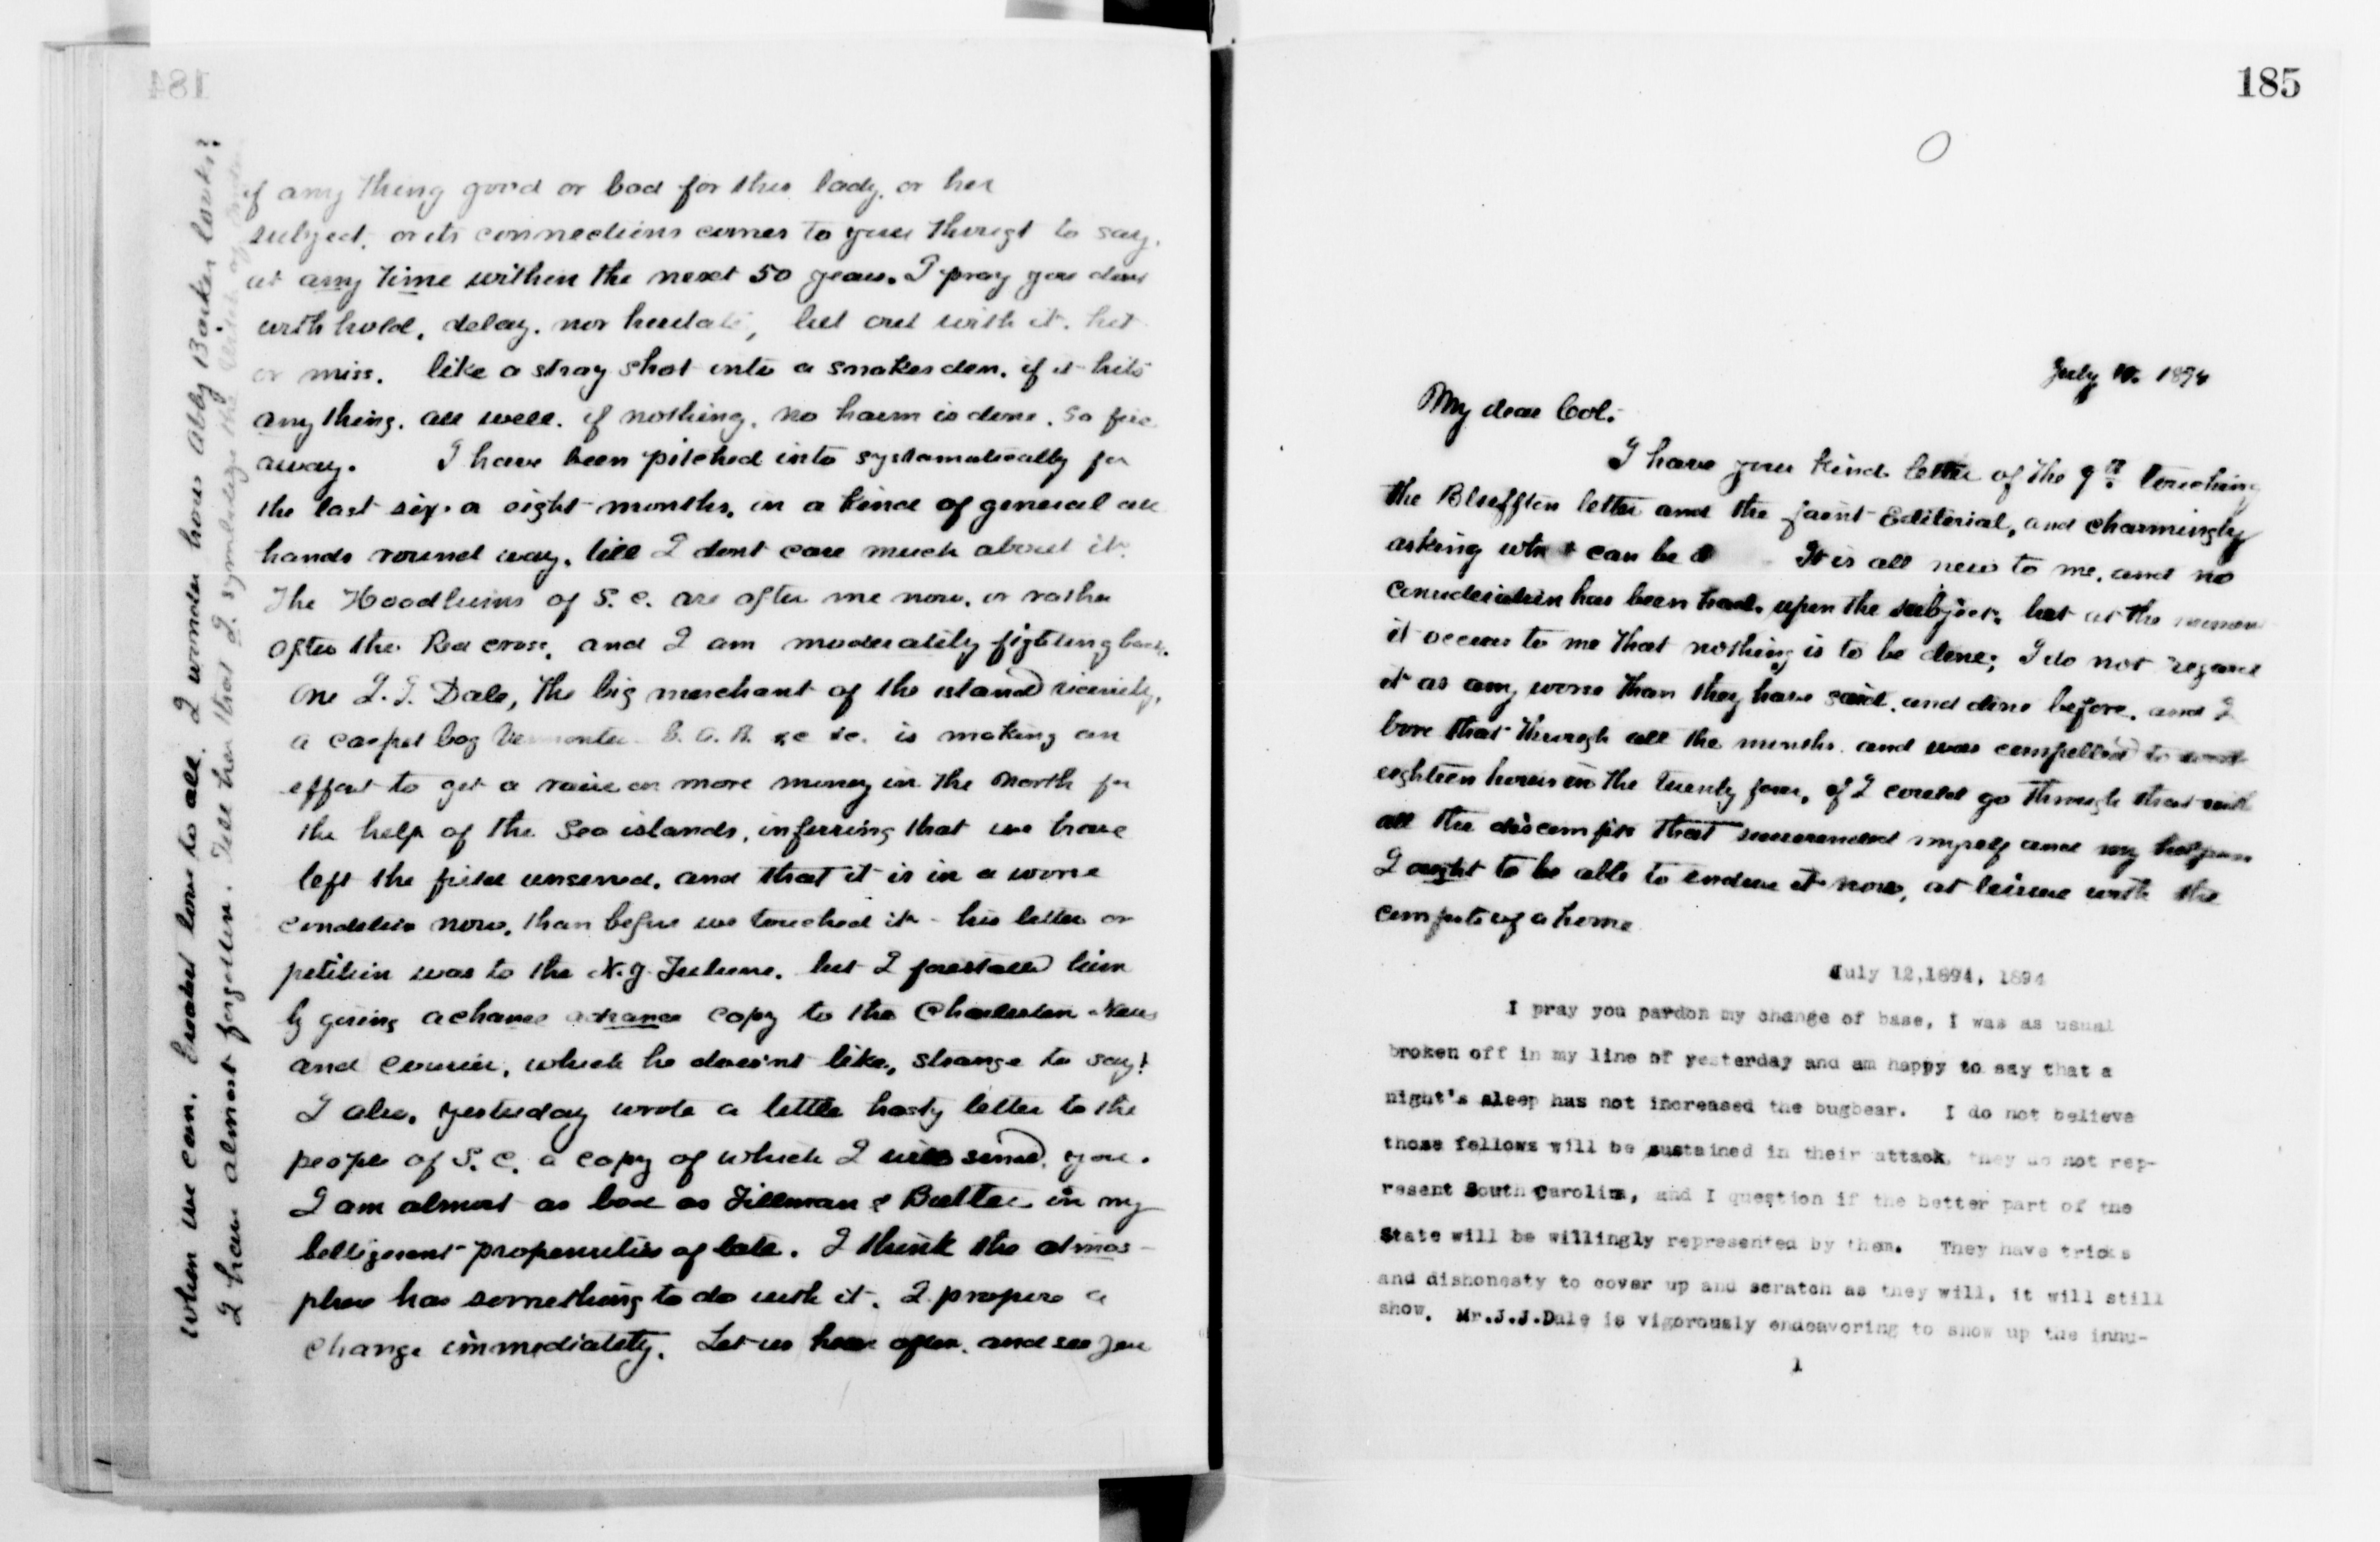 184
if any thing good or bad for this lady, or her
subject, or its connections comes to your thought to say,
at any time within the next 50 years. I pray you dont
withhold, delay, nor hesitate, but out with it, hit
or miss. like a stray shot into a snakes den, if it hits
any thing, all well. if nothing, no harm is done. So fire
away. I have been pitched into systematically for
the last six or eight months, in a kind of general all
hands round way, till I dont care much about it.
The Hoodlums of S. C. are after me now, or rather
after the Red cross, and I am moderately fighting back.
One J. J. Dale, the big merchant of the island vicinity,
a carpet bag Vermonter G. A. R. &c &c. is making an
effort to get a raise on more money in the North for
the help of the Sea islands, inferring that we have
left the field unserved, and that it is in a worse
condition now, than before we touched it - his letter or
petition was to the N. Y. Tribune, but I forestalled him
by giving a chance advance copy to the Charleston News
and Courier, which he does'nt like, strange to say!
I also, yesterday wrote a little hasty letter to the
people of S. C. a copy of which I will send you.
I am almost as bad as Tillman & Butler in my
belligerent propensities of late. I think the atmos-
phere has something to do with it. I propose a
change immediately. Let us hear often, and see you
when we can. Greatest love to all. I wonder how Abby Barker looks?
I have almost forgotten. Tell her that I symbolize the
185
July 1894
My dear Col:
I have your kind letter of the 9th touching
the Bluffton letter and the faint Editorial, and charmingly
asking what can be d It is all new to me, and no
consideration has been had upon the subject, but at the moment
it occurs to me that nothing is to be done; I do not regard
it as any worse than they have said, and done before, and I
bore that through all the months and was compelled to work
eighteen hours in the twenty four, if I could go through that with
all the discomfits that surrounded myself and my helpers
I ought to be able to endure it now, at leisure with the
comforts of a home
July 12,1894, 1894
I pray you pardon my change of base, I was as usual
broken off in my line of yesterday and am happy to say that a
night's sleep has not increased the bugbear. I do not believe
those fellows will be sustained in their attack, they do not rep-
resent South Carolina, and I question if the better part of the
State will be willingly represented by them. They have tricks
and dishonesty to cover up and scratch as they will, it will still
show. Mr.J.J.Dale is vigorously endeavoring to show up the inhu-
1